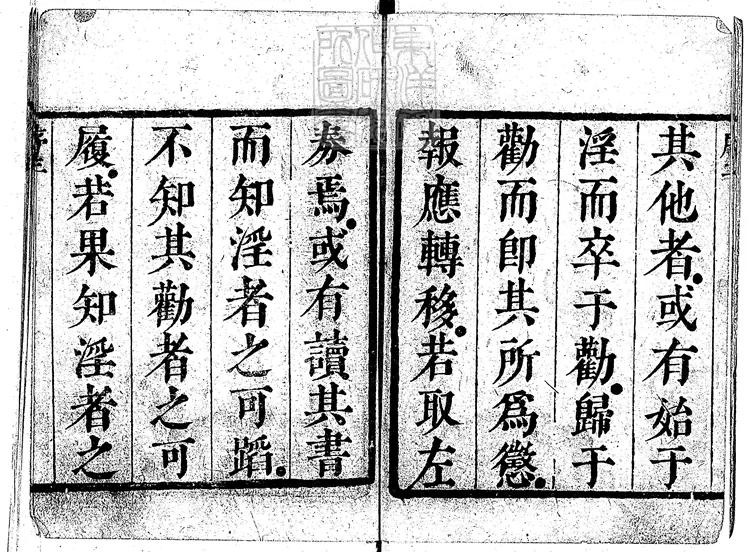 其他者或有始于
淫而卒于勸歸于
勸而卽其所爲懲
報應轉移若取左
券焉或有讀其書
而知淫者之可蹈
不知其勸者之可
履若果知淫者之